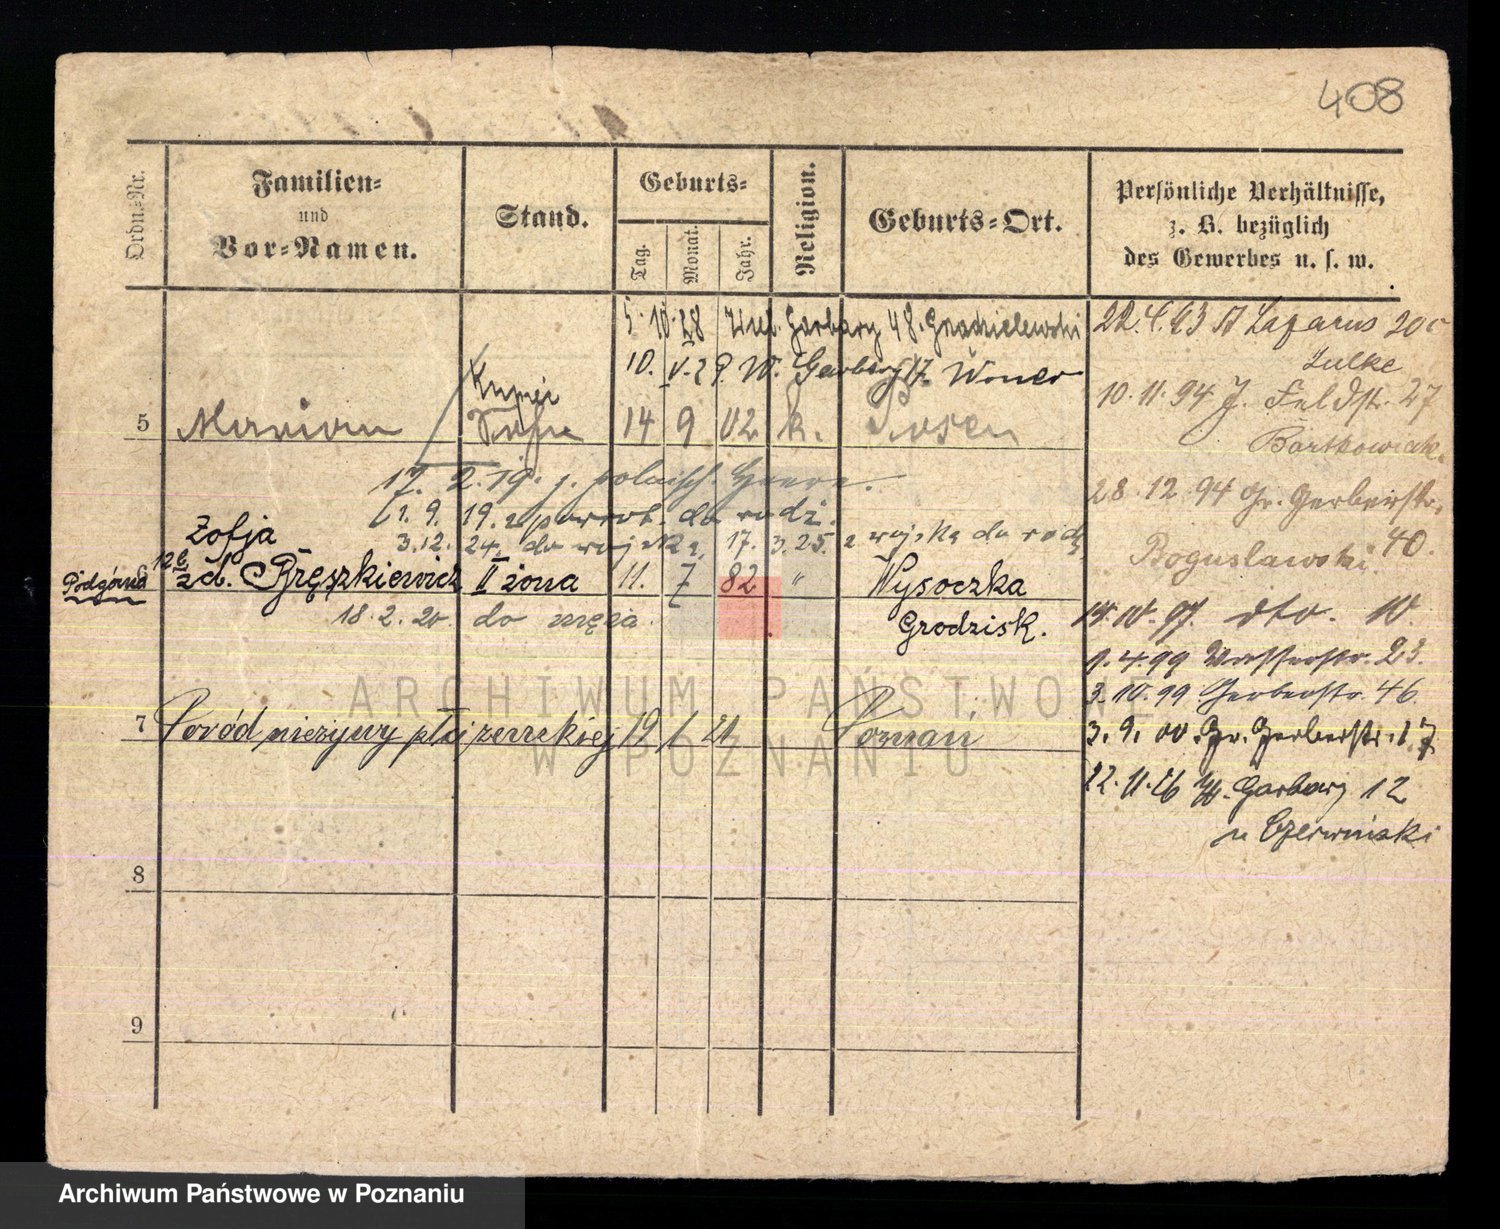 408
Ordn.-Nr.
Familien-
und
Vor-Namen.
Stand.
Geburts-
Tag.
Monat.
Jahr.
Religion.
Geburts-Ort.
Persönliche Verhältnisse,
z. B. bezüglich
des Gewerbes u. s. w.
5.10.28 Garbary 48.
10. V. 29. W. Garbary
5 Marian 14 9 02 k. Posen
17. 2. 19. z. polnisch. Heere.
1. 9. 19. z powrot. do rodz.
3.12. 24. do wojska, 17. 3.25. z wojska do rodz
Zofja
Podgórna
6 zd. Pręszkiewicz II żona 11. 7 82 " Wysoczka
Grodzisk.
18. 2. 20. do męża.
7 Poród nieżywy płci żeńskiej 12 1 21 Poznań
8
9
22. 4. 93 St Lazarus
Zulke
10. 11. 94 J. Feldstr. 27
Bartkowiak.
28. 12. 94 Gr. Gerberstr.
Boguslawski. 40.
10. 97. dto. 10.
1. 4. 99 Wasserstr. 23.
3. 10. 99 Gerberstr. 46.
3. 9. 00. Gr. Gerberstr. 17.
22. 11. 26 W. Garbary 12
u Czerwiński
ARCHIWUM PAŃSTWOWE
W POZNANIU
Archiwum Państwowe w Poznaniu